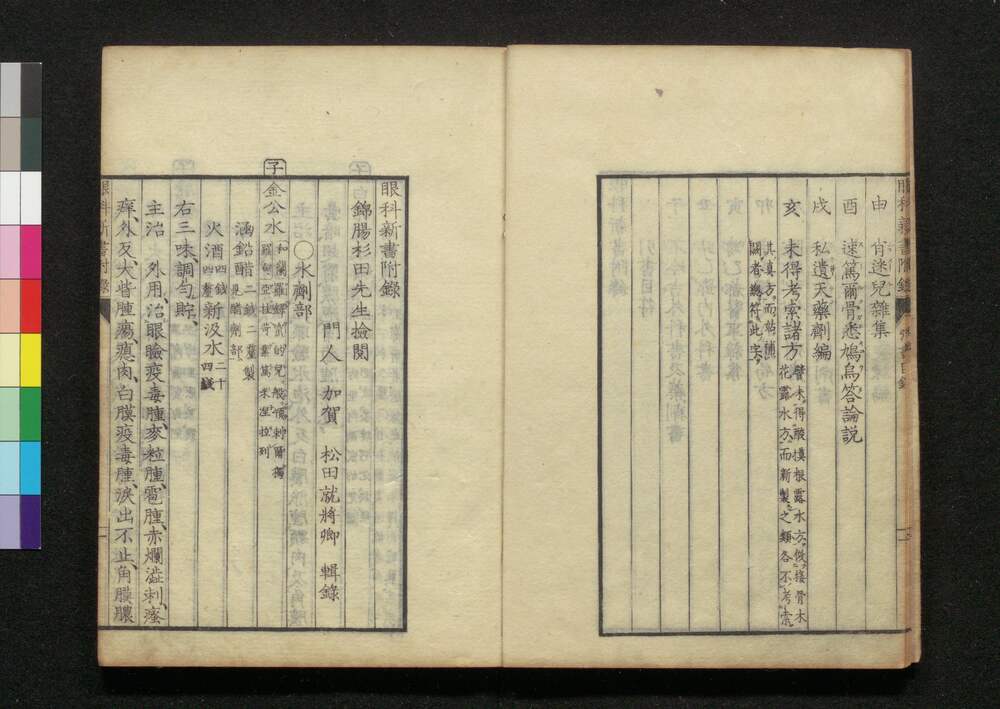 申 肖迷兒雜集
酉 速篤爾骨悉鳩烏答論説
戌 私遺天藥劑編
亥 未得考索諸方 譬未得酸摸根露水方、倣接骨木
花露水方、而新製之類各不考索
其真方、而姑補
闕者、總符此字、
眼科新書附錄
錦腸杉田先生撿閲
門人 加賀 松田就將卿 輯錄
〇水劑部
子 金公水 和蘭
涵鉛醋 二錢二
見醋劑部 製
火酒 四錢 新汲水 二十
四錢
右三味調勻貯
主治 外用、治眼瞼疫毒腫、麥粒腫、雹腫、赤爛澁刺、瘙
痒、外反、大眥腫瘍、瘜肉、白膜疫毒腫、淚出不止、角膜膿
眼科新書附錄